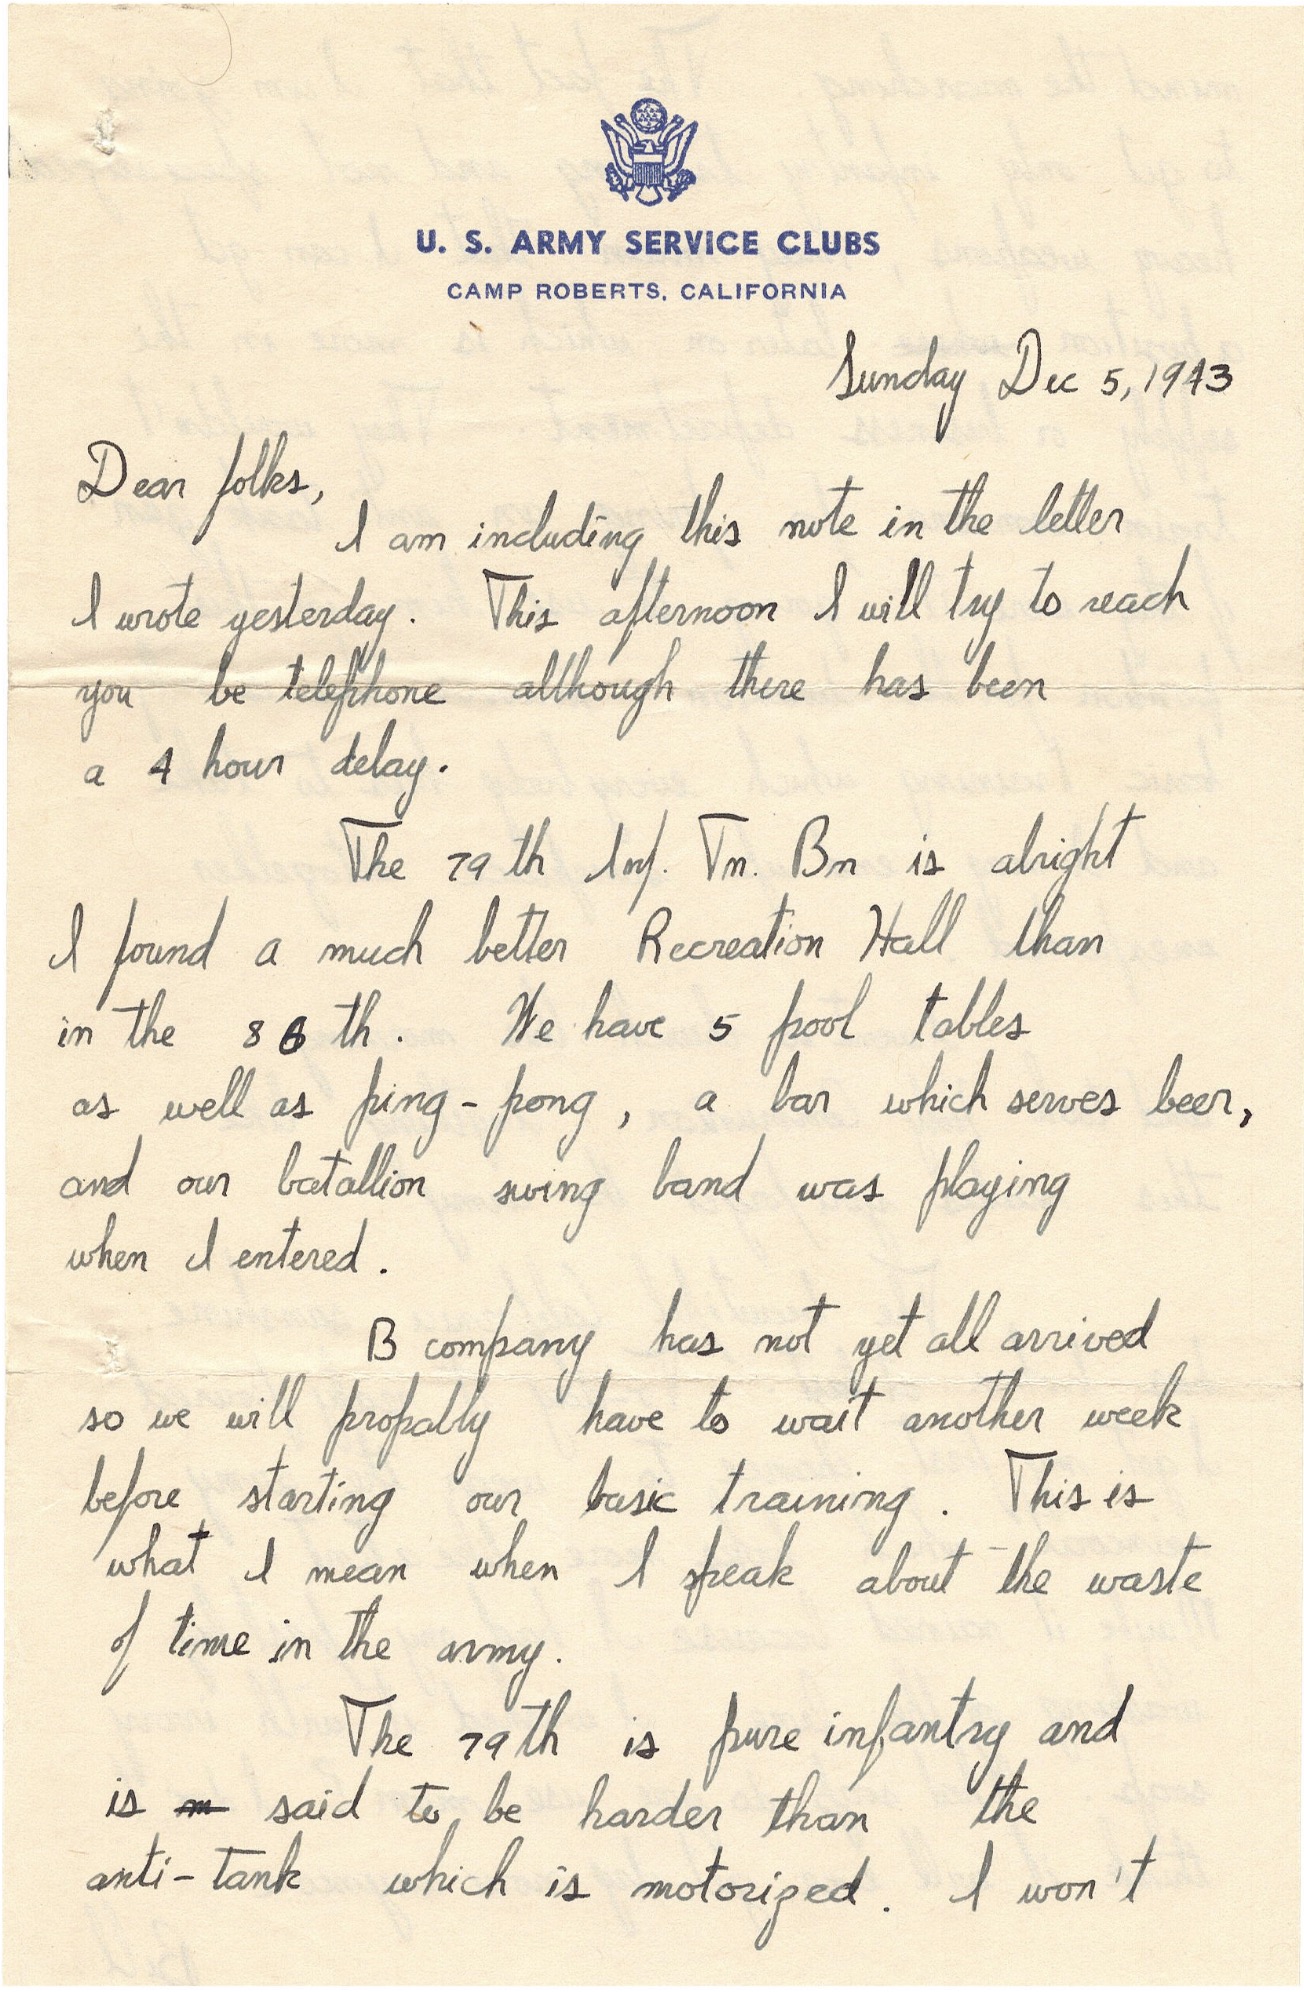 U. S. ARMY SERVICE CLUBS
CAMP ROBERTS, CALIFORNIA
Sunday Dec 5, 1943
Dear folks,
I am including this note in the letter
I wrote yesterday. This afternoon I will try to reach
you be telephone although there has been
a 4 hour delay.
The 79th Inf. Tn. Bn is alright
I found a much better Recreation Hall than
in the 86th. We have 5 pool tables
as well as ping-pong, a bar which serves beer,
and our batallion swing band was playing
when I entered.
B company has not yet all arrived
so we will propably have to wait another week
before starting our basic training. This is
what I mean when I speak about the waste
of time in the army.
The 79th is pure infantry and
is said to be harder than the
anti-tank which is motorized. I won't